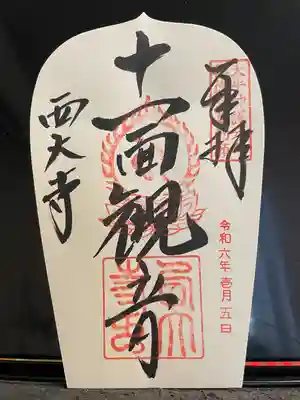 奉拝
令和六年壱月五日
十一面観音
西大寺